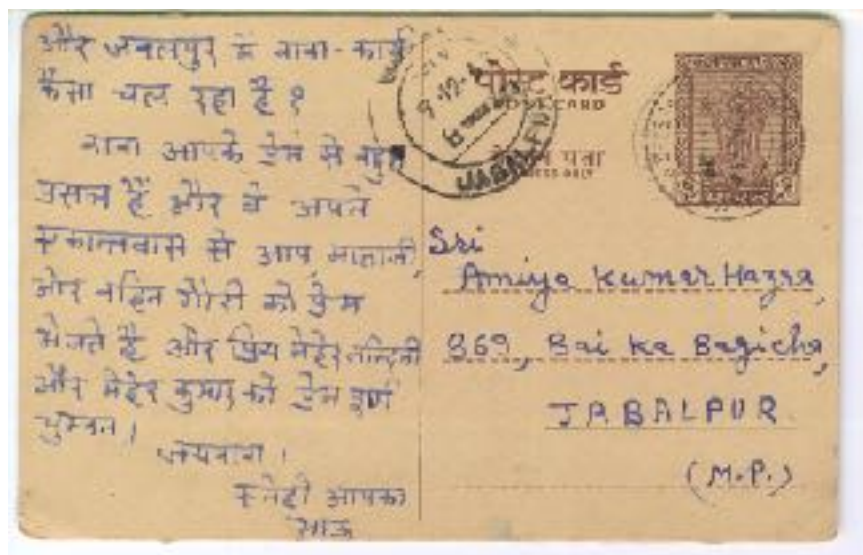 और जबलपुर में बाबा-कार्य
कैसा चल रहा है ?
बाबा आपके प्रेम से बहुत
प्रसन्न हैं और वे अपने
एकान्तवास से आप, माताजी,
और बहिन गौरी को प्रेम
भेजते है और प्रिय मेहेर नन्दिनी
और मेहेर कुमार को प्रेम पूर्ण
चुम्बन ।
जयबाबा ।
स्नेही आपका
भाऊ
पोस्ट कार्ड
POST CARD
पता
ADDRESS ONLY
JABALPUR
Sri
Amiya Kumar Hazra,
869, Bai ka Bagicha,
JABALPUR
(M.P.)